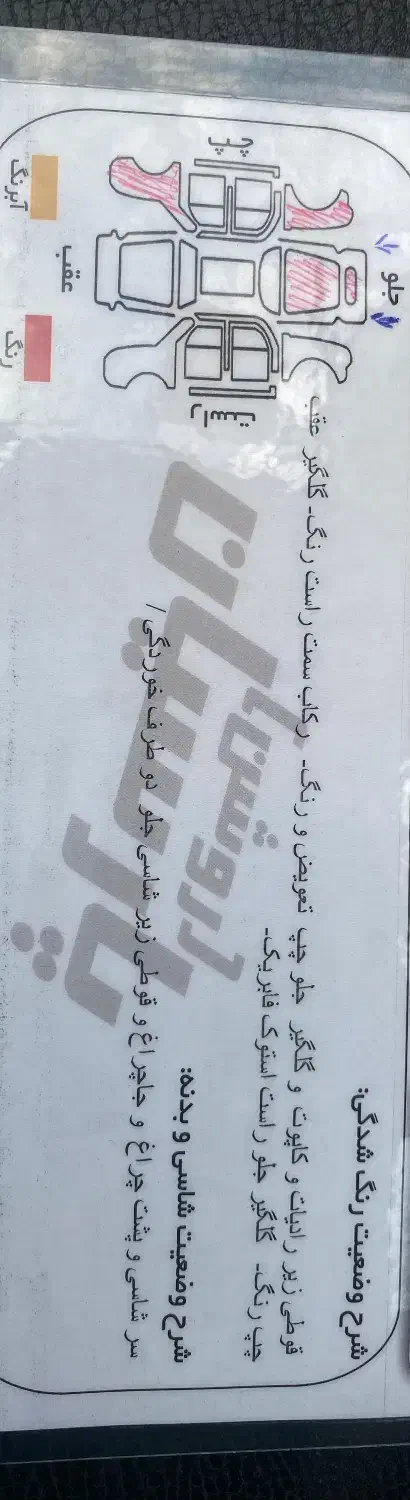 شرح وضعیت رنگ شدگی:
قوطی زیر رادیات و کاپوت و گلگیر جلو چپ تعویض و رنگ- رکاب سمت راست رنگ- گلگیر عقب
چپ رنگ- گلگیر جلو راست استوک فابریک-
شرح وضعیت شاسی و بدنه:
سر شاسی و پشت چراغ و جاچراغ و قوطی زیر شاسی جلو دو طرف خوردگی/
جلو
چپ
راست
عقب
آبرنگ
رنگ
پارسیان